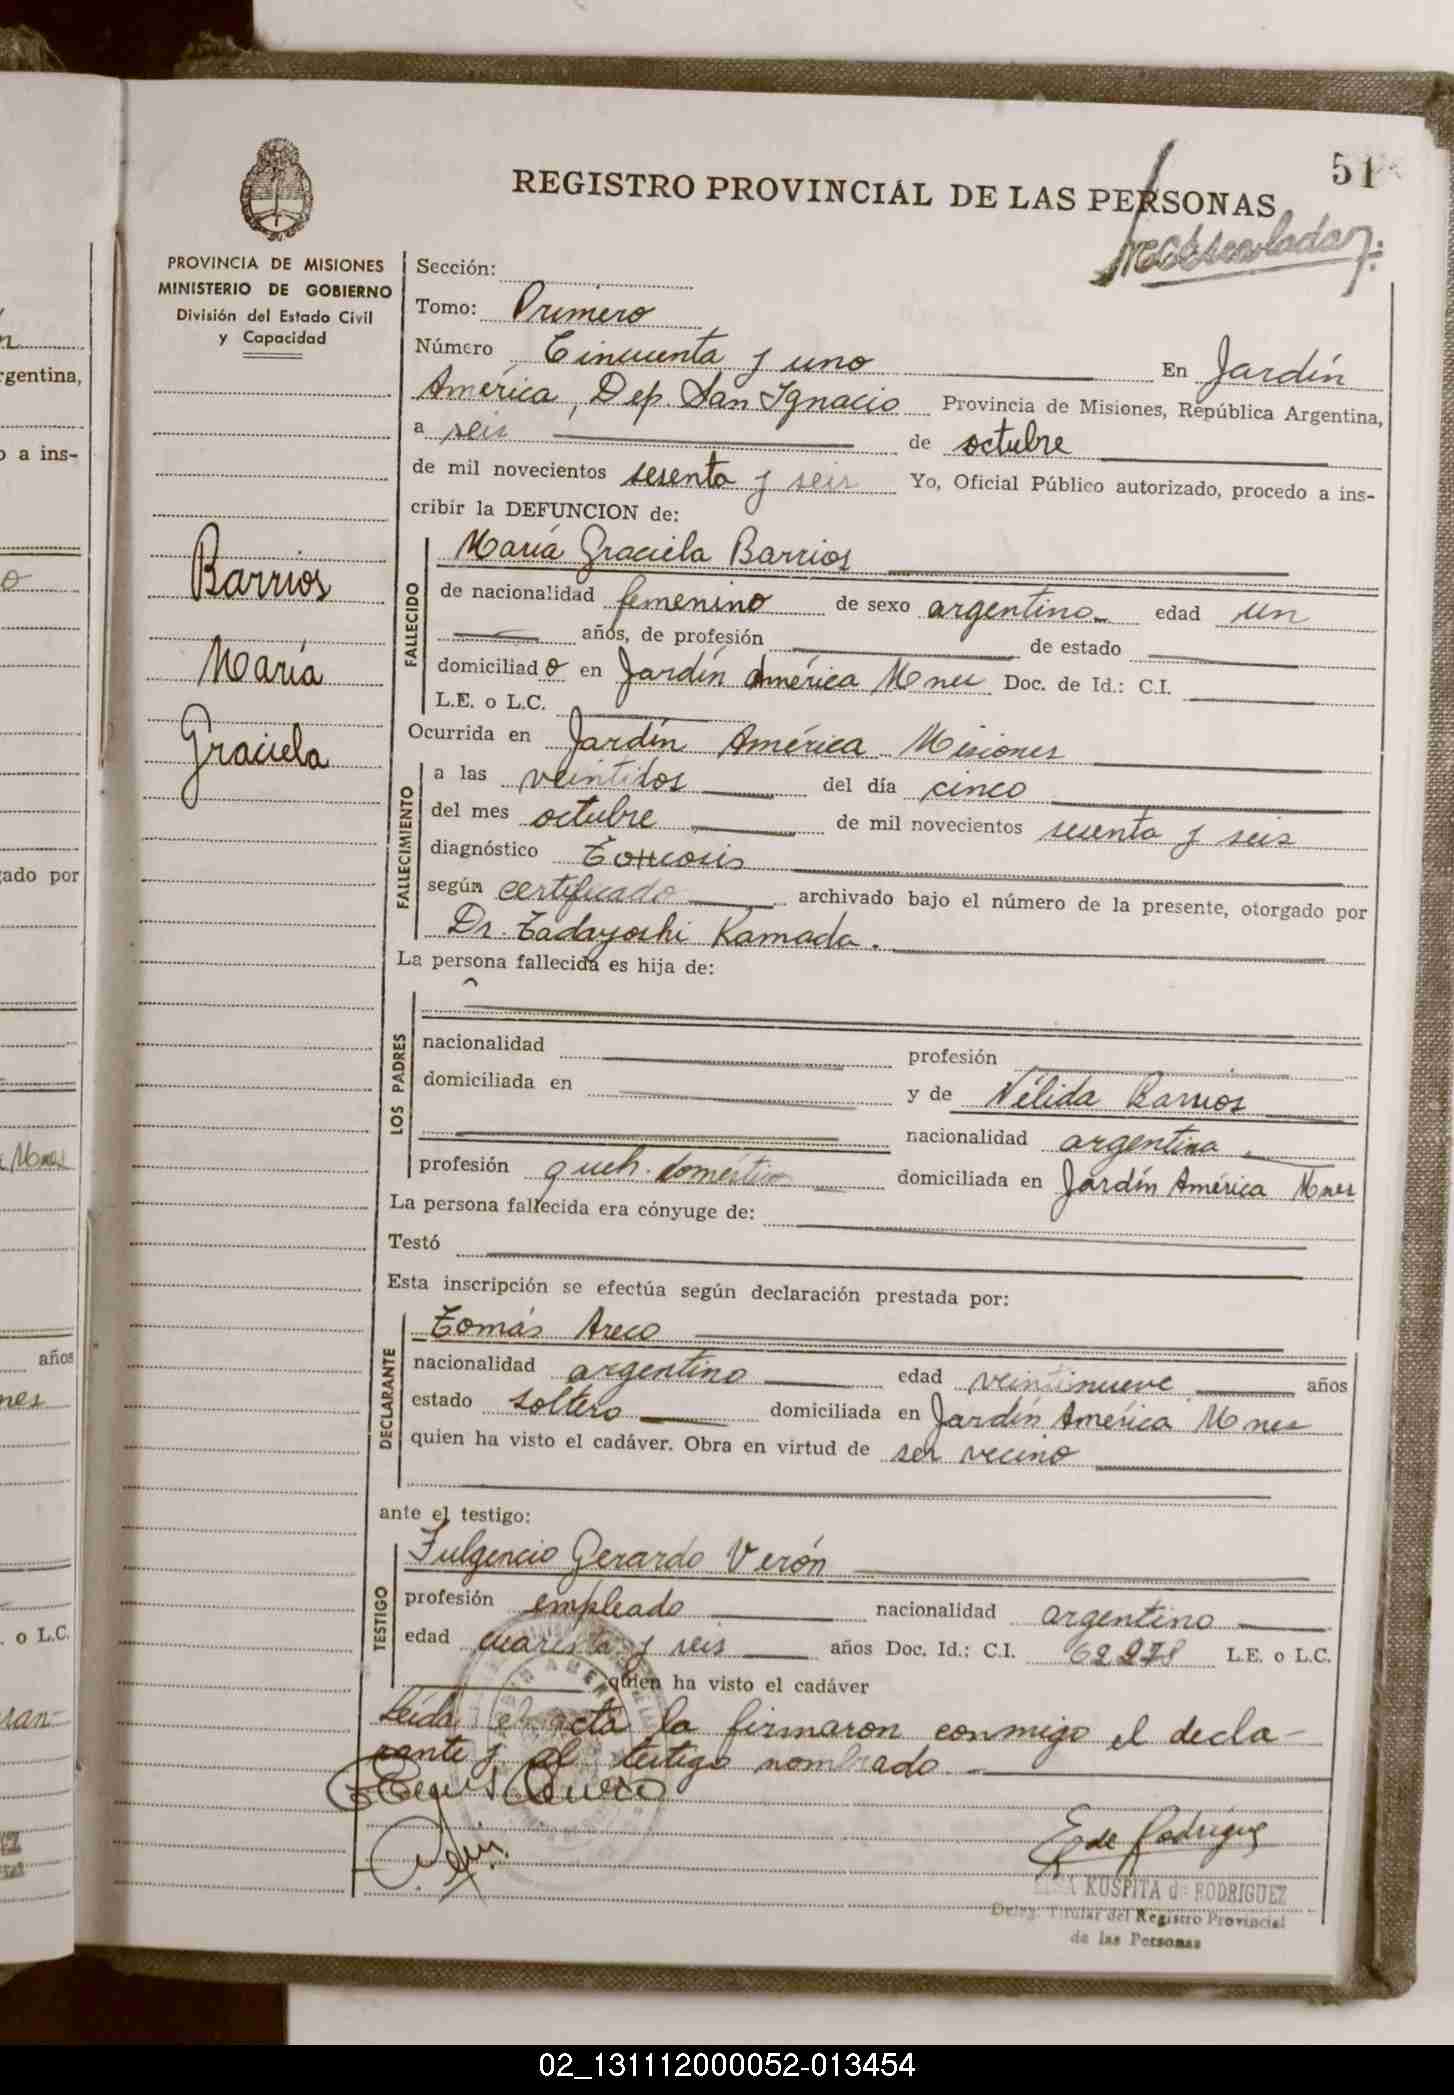 51
REGISTRO PROVINCIAL DE LAS PERSONAS
PROVINCIA DE MISIONES
MINISTERIO DE GOBIERNO
División del Estado Civil
y Capacidad
Barrios
María
Graciela
Sección:
Tomo: Primero
Número Cincuenta y uno En Jardín
América, Dep. San Ignacio Provincia de Misiones, República Argentina,
a seis de octubre
de mil novecientos sesenta y seis Yo, Oficial Público autorizado, procedo a ins-
cribir la DEFUNCION de:
FALLECIDO
María Graciela Barrios
de nacionalidad femenino de sexo argentino edad un
años, de profesión de estado
domiciliado en Jardín América Mnes Doc. de Id.: C.I.
L.E. o L.C.
Ocurrida en Jardín América Misiones
FALLECIMIENTO
a las veintidos del día cinco
del mes octubre de mil novecientos sesenta y seis
diagnóstico Toxicosis
según certificado archivado bajo el número de la presente, otorgado por
Dr. Tadayoshi Kamada.
La persona fallecida es hija de:
LOS PADRES
nacionalidad profesión
domiciliada en y de Nélida Barrios
nacionalidad argentina
profesión queh. doméstico domiciliada en Jardín América Mnes
La persona fallecida era cónyuge de:
Testó
Esta inscripción se efectúa según declaración prestada por:
DECLARANTE
Tomás Areco
nacionalidad argentino edad veintinueve años
estado soltero domiciliada en Jardín América Mnes
quien ha visto el cadáver. Obra en virtud de ser vecino
ante el testigo:
TESTIGO
Fulgencio Gerardo Verón
profesión empleado nacionalidad argentino
edad cuarenta y seis años Doc. Id.: C.I. 62278 L.E. o L.C.
quien ha visto el cadáver
Leída el acta la firmaron conmigo el decla-
rante y el testigo nombrado.
E de Rodríguez
KUSPITA de RODRIGUEZ
Deleg. Titular del Registro Provincial
de las Personas
rgentina,
o a ins-
gado por
Mnes
años
nes
. o L.C.
02_131112000052-013454